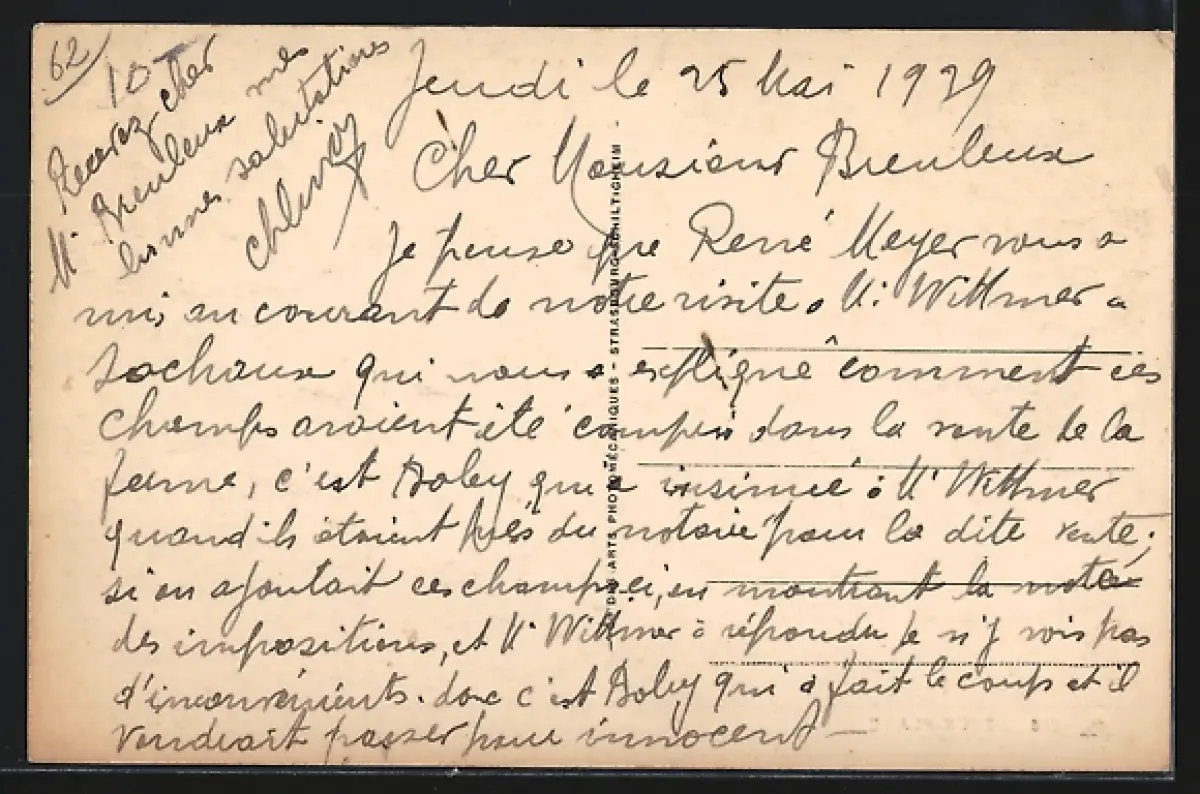 62
10
Recevez cher
Mr Breuleux mes
bonnes salutations
Jeudi le 25 Mai 1939
Cher Monsieur Breuleux
Je pense que René Meyer vous a
mis au courant de notre visite a Mr Wittmer a
Sochaux qui nous a expliqué comment ces
champs avaient été compris dans la vente de la
ferme, c'est Boley qui a insinué a Mr Wittmer
quand ils étaient près du notaire pour la dite vente,
si on ajoutait ces champs ci, en montrant la note
des impositions, et Mr Wittmer a répondu je n'y vois pas
d'inconvénients. donc c'est Boley qui a fait le coup et il
voudrait passer pour innocent —
D'ARTS PHOTOMÉCANIQUES - STRASBOURG-SCHILTIGHEIM